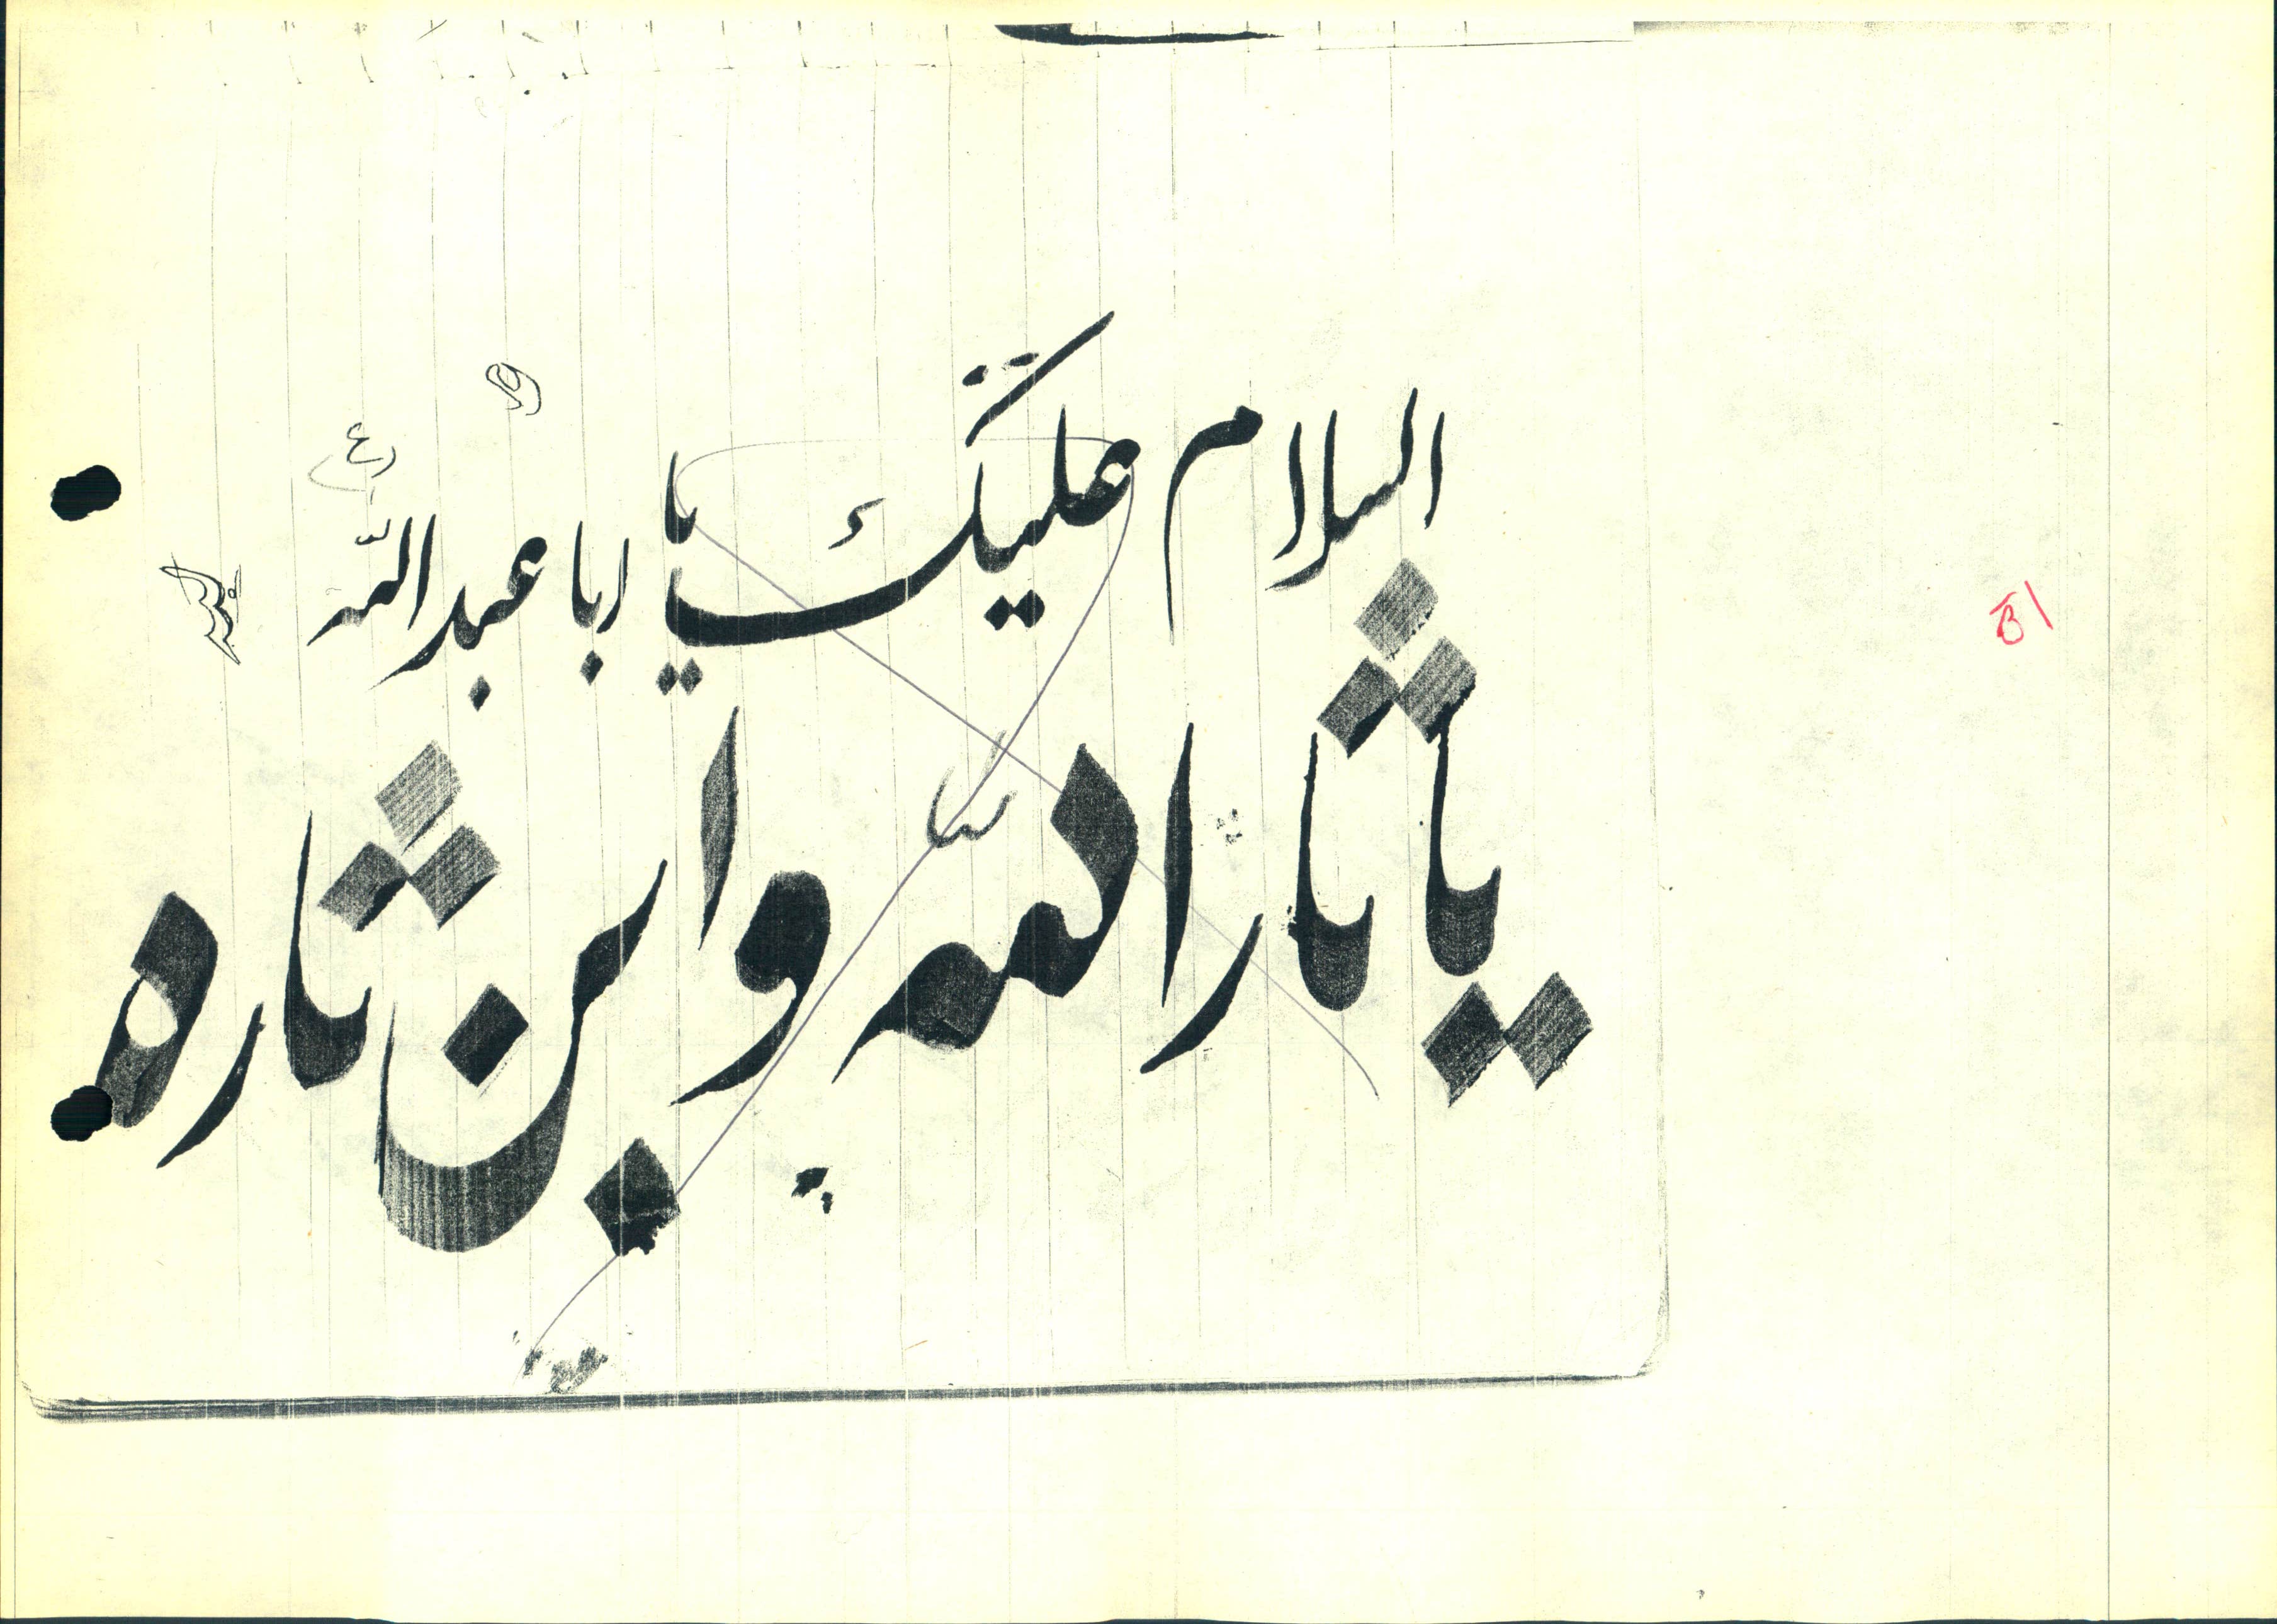 السلام علیک یا ابا عبدالله
یا ثارالله وابن ثاره